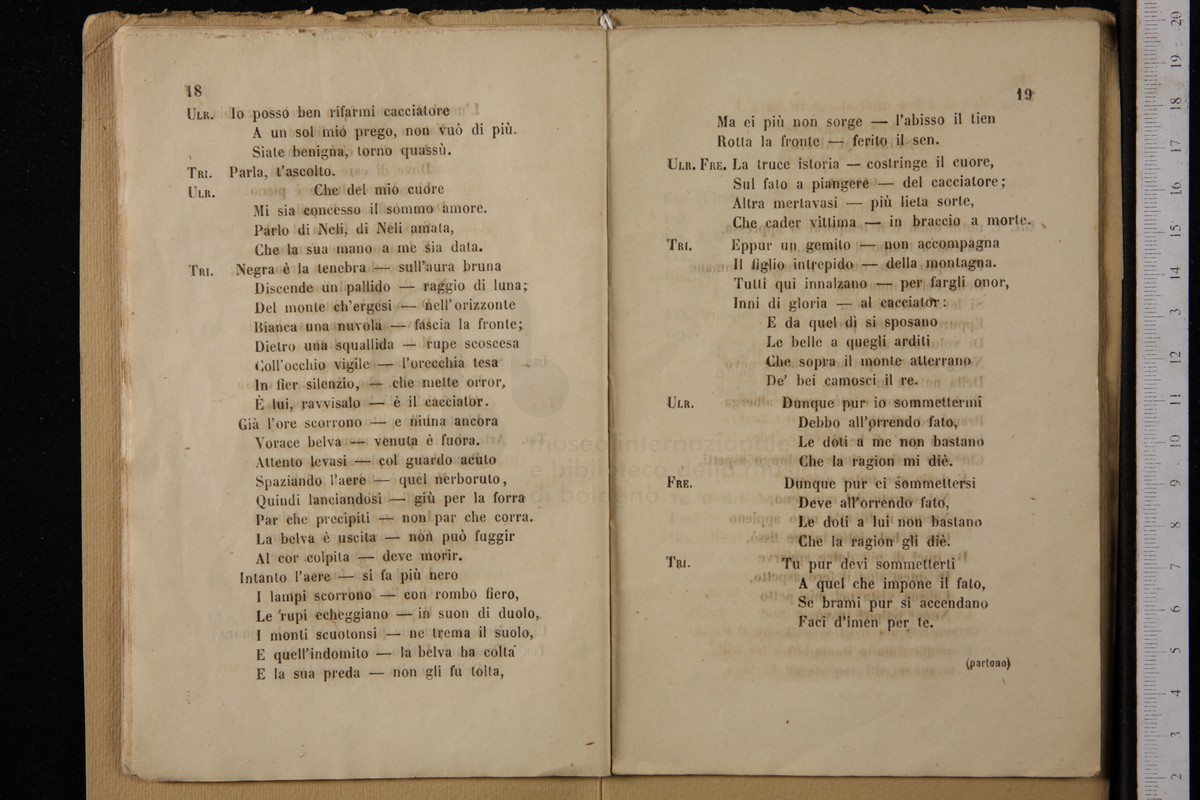 18
ULR. Io posso ben rifarmi cacciatore
A un sol mio prego, non vuò di più.
Siate benigna, torno quassù.
TRI. Parla, t'ascolto.
ULR. Che del mio cuore
Mi sia concesso il sommo amore.
Parlo di Neli, di Neli amata,
Che la sua mano a me sia data.
TRI. Negra è la tenebra — sull'aura bruna
Discende un pallido — raggio di luna;
Del monte ch'ergesi — nell'orizzonte
Bianca una nuvola — fascia la fronte;
Dietro una squallida — rupe scoscesa
Coll'occhio vigile — l'orecchia tesa
In fier silenzio, — che mette orror,
È lui, ravvisalo — è il cacciator.
Già l'ore scorrono — e niuna ancora
Vorace belva — venuta è fuora.
Attento levasi — col guardo acuto
Spaziando l'aere — quel nerboruto,
Quindi lanciandosi — giù per la forra
Par che precipiti — non par che corra.
La belva è uscita — non può fuggir
Al cor colpita — deve morir.
Intanto l'aere — si fa più nero
I lampi scorrono — con rombo fiero,
Le rupi echeggiano — in suon di duolo,
I monti scuotonsi — ne trema il suolo,
E quell'indomito — la belva ha colta
E la sua preda — non gli fu tolta,
19
Ma ei più non sorge — l'abisso il tien
Rotta la fronte — ferito il sen.
ULR. FRE. La truce istoria — costringe il cuore,
Sul fato a piangere — del cacciatore;
Altra mertavasi — più lieta sorte,
Che cader vittima — in braccio a morte.
TRI. Eppur un gemito — non accompagna
Il figlio intrepido — della montagna.
Tutti qui innalzano — per fargli onor,
Inni di gloria — al cacciator:
E da quel dì si sposano
Le belle a quegli arditi
Che sopra il monte atterrano
De' bei camosci il re.
ULR. Dunque pur io sommettermi
Debbo all'prrendo fato,
Le doti a me non bastano
Che la ragion mi diè.
FRE. Dunque pur ei sommettersi
Deve all'orrendo fato,
Le doti a lui non bastano
Che la ragion gli diè.
TRI. Tu pur devi sommetterti
A quel che impone il fato,
Se brami pur si accendano
Faci d'imen per te.
(partono)
museo internazionale
e biblioteca della musica
di bologna
20
19
18
17
16
15
14
13
12
11
10
9
8
7
6
5
4
3
2